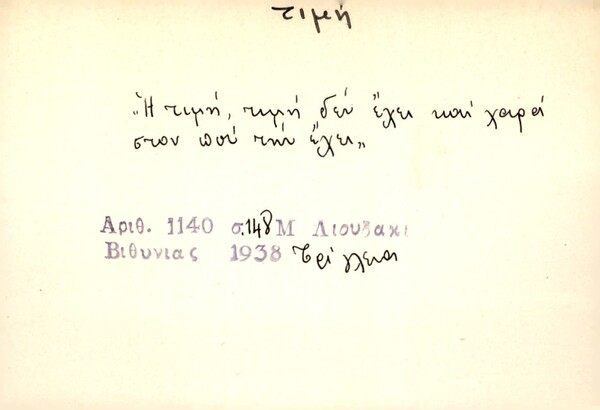 τιμή
„Ἡ τιμή, τιμή δέν ἔχει καί χαρά
στον πού τήν ἔχει„
Αριθ. 1140 σ.148 Μ Λιουδακι
Βιθυνιας 1938 Τρίγλεια